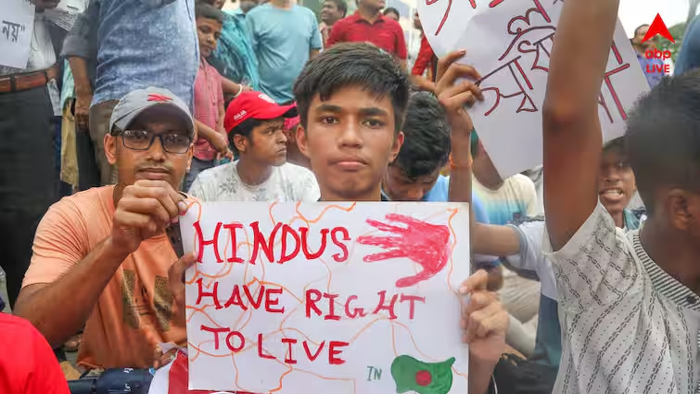 নয়"
HINDUS
HAVE RIGHT
TO LIVE
IN
abp
LIVE